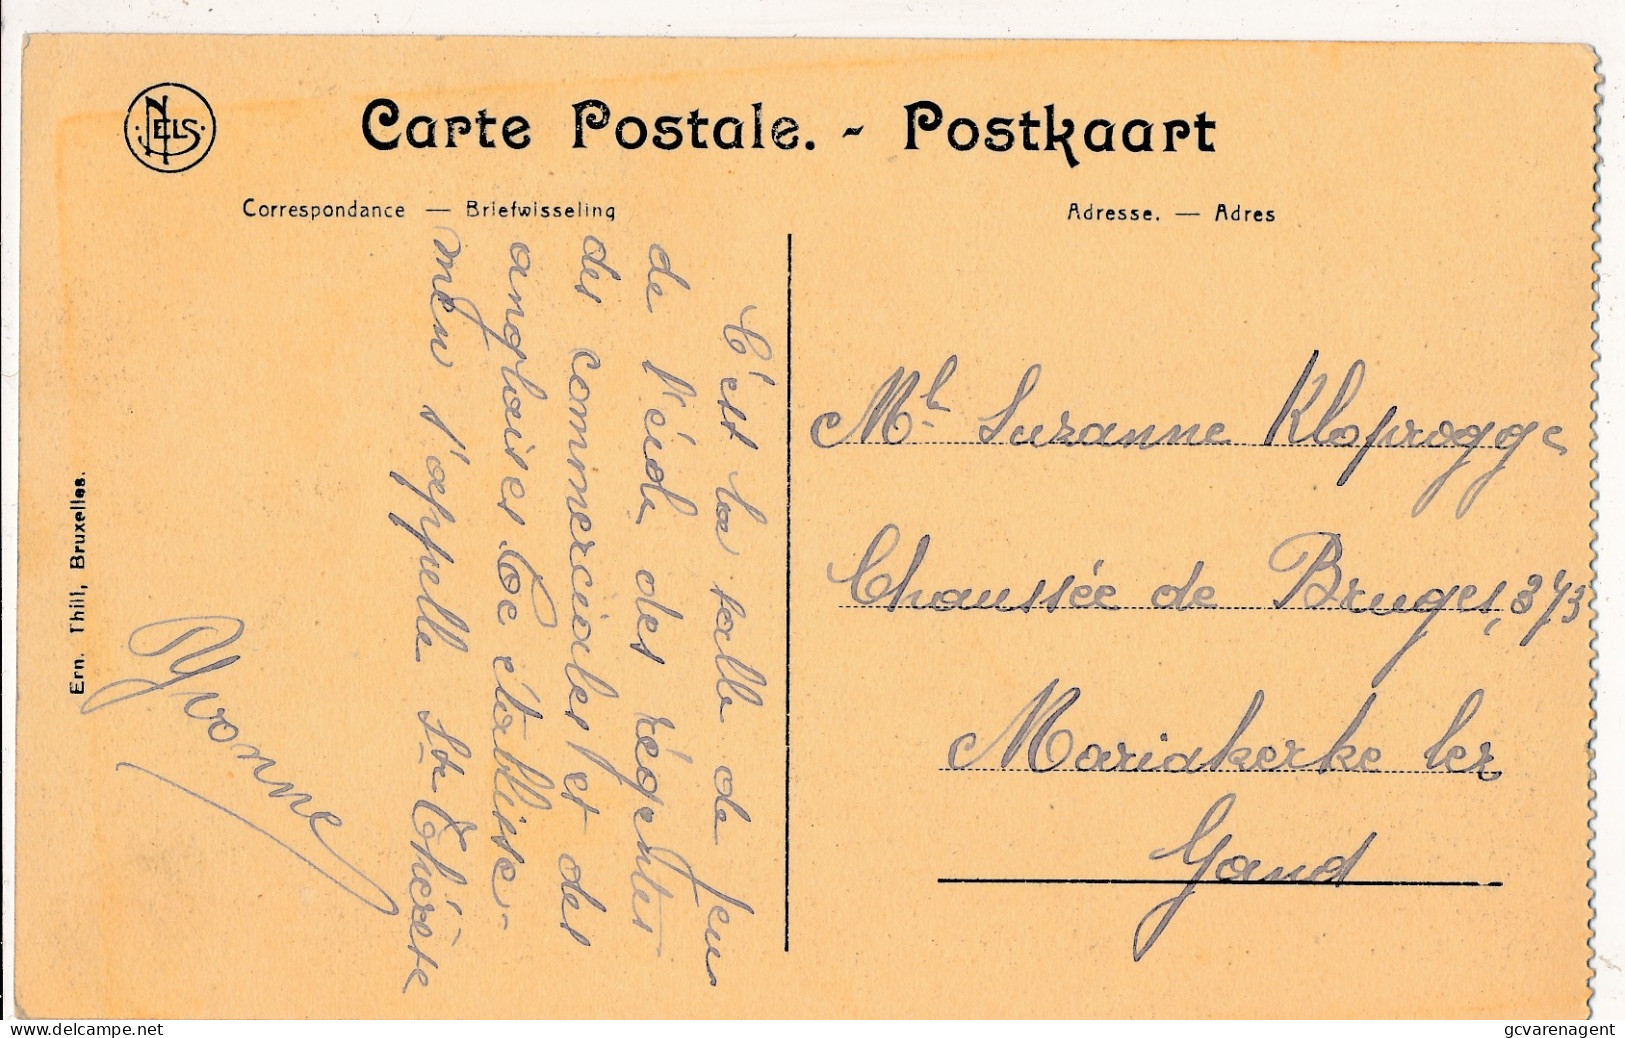 NELS
Carte Postale. - Postkaart
Correspondance — Briefwisseling
Adresse. — Adres
C'est la salle de jeu
de l'éude des régentes
des commerciales et des
anglaises Ce établisse-
men s'appelle Ste Thérèse
Yvonne
Ern. Thill, Bruxelles.
Mle Suzanne Kloprogge
Chaussée de Bruges, 373
Mariakerke lez
Gand
delcampe.net
gcvarenagent